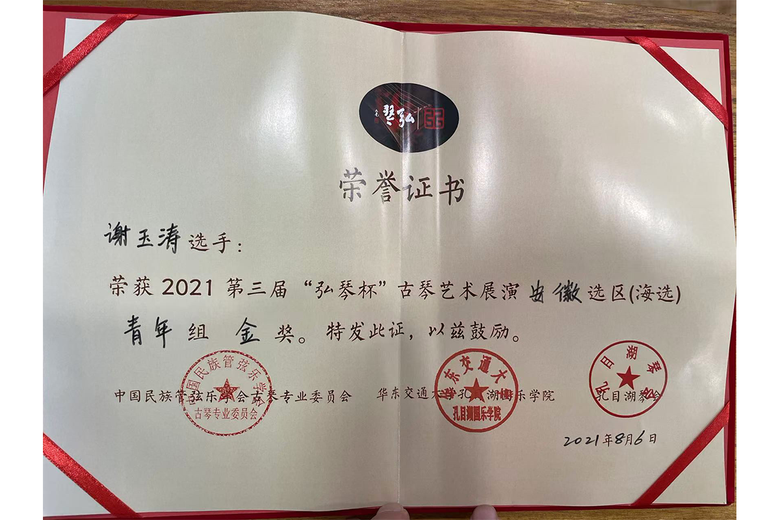 弘琴
荣誉证书
谢玉涛选手：
荣获2021第三届“弘琴杯”古琴艺术展演安徽选区(海选)
青年组金奖。特发此证，以兹鼓励。
中国民族管弦乐学会古琴专业委员会 华东交通大学孔目湖国乐学院 孔目湖琴会
中国民族管弦乐学会
古琴专业委员会
华东交通大学
孔目湖国乐学院
孔目湖琴会
2021年8月6日